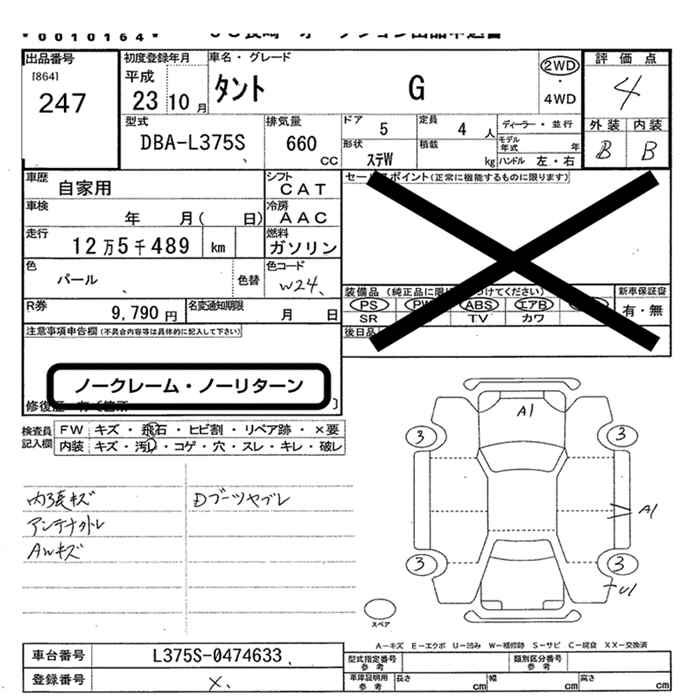 0010164
出品番号
[864]
247
初度登録年月
平成
23 10 月
車名・グレード
タント G
2WD
・
4WD
評価点
4
外装 内装
B B
型式
DBA-L375S
排気量
660
CC
ドア
5
定員
4 人
形状
ステW
積載
kg
ディーラー・並行
モデル年式 年
ハンドル 左・右
車歴
自家用
シフト
CAT
車検
年 月( 日)
冷房
AAC
走行
12万5千489 km
燃料
ガソリン
色
パール
色替
色コード
W24
R券
9,790 円
名変通知期限
月 日
セールスポイント(正常に機能するものに限ります)
装備品
PS PW ABS エアB
SR TV カワ
新車保証書
有・無
後日品
注意事項申告欄(不具合内容等は具体的に記入して下さい)
ノークレーム・ノーリターン
検査員
記入欄
FW キズ・飛石・ヒビ割・リペア跡・×要
内装 キズ・汚レ・コゲ・穴・スレ・キレ・破レ
内張キズ
アンテナ外レ
AWキズ
Dブーツヤブレ
A1
3 3
A1
3 3
U1
スペア
A-キズ E-エクボ U-凹み W-補修跡 S-サビ C-腐食 XX-交換済
車台番号
L375S-0474633
登録番号
×
型式指定番号
参考
類別区分番号
参考
車庫証明用
参考
長さ cm
幅 cm
高さ cm